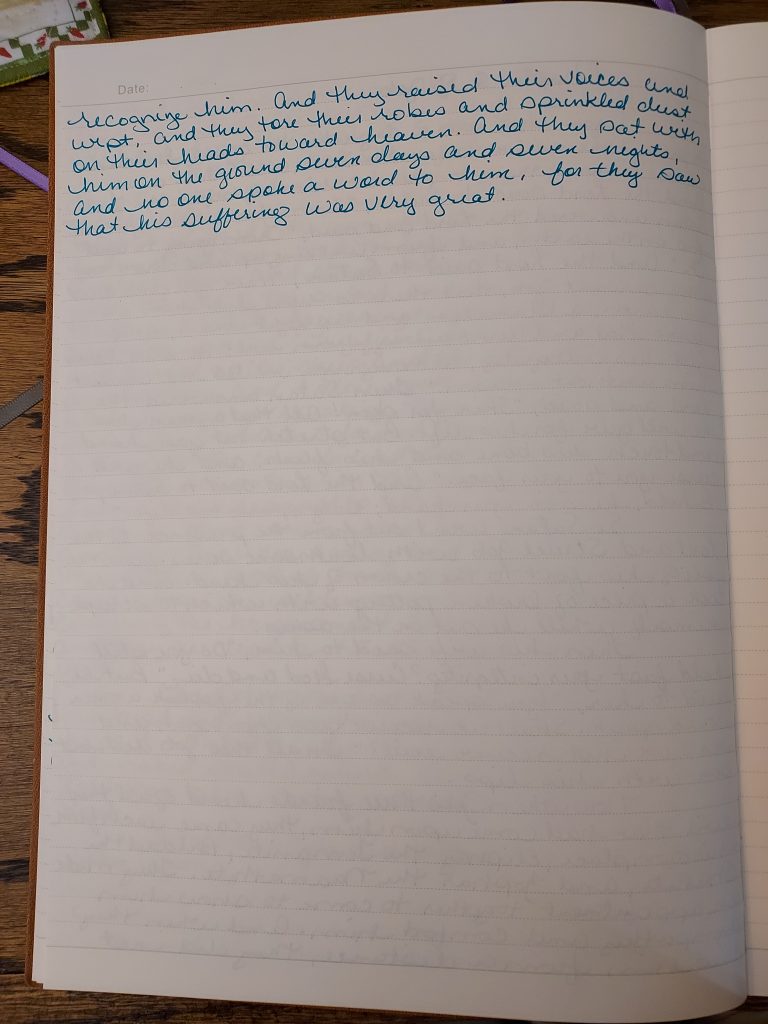 Date:
recognize him. And they raised their voices and
wept, and they tore their robes and sprinkled dust
on their heads toward heaven. And they sat with
him on the ground seven days and seven nights,
and no one spoke a word to him, for they saw
that his suffering was very great.